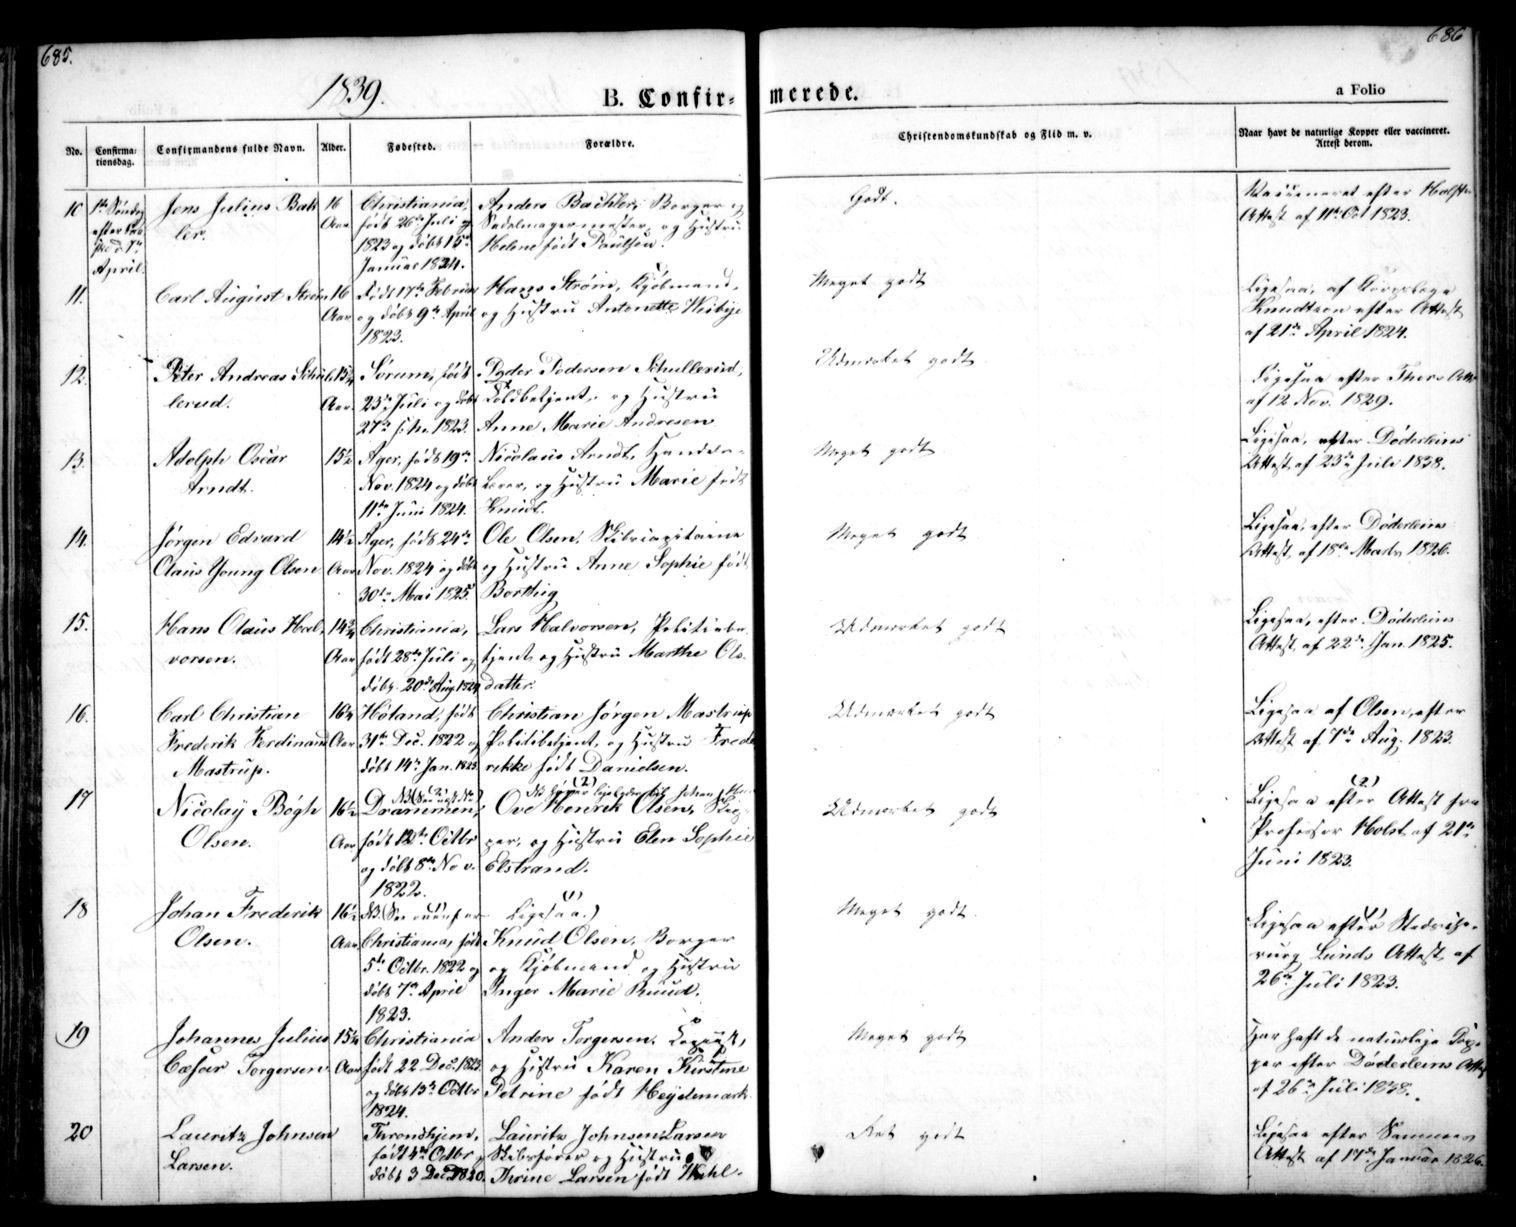 685.
686
1839.
B. Confir-
merede.
a Folio
No.
Confirma-
tionsdag.
Confirmandens fulde Navn.
Alder.
Fødested.
Forældre.
Christendomskundskab og Flid m. v.
Naar havt de naturlige Kopper eller vaccineret.
Attest derom.
10
1ste Søndag
efter Paa-
ske d. 7de
April.
Jens Julius Bak
ler.
16
Aar
Christiania,
født 26de Juli
1823 og døbt 15de
Januar 1824.
Anders Bachler, Borger og
Sadelmagermester, og Hustru
Helene født Paulsen.
Godt.
Vaccineret efter Holsts
Attest af 11te Oct 1823.
11.
Carl August Strøm
16
Aar
Født 17de Februar
og døbt 9de April
1823.
Hans Strøm, Kjøbmand,
og Hustru Antonette Wisbye
Meget godt
Ligesaa, af
Knudtzon efter Attest
af 21de April 1824.
12.
Peter Andreas Schul-
lerud.
15¾
Aar.
Sørum, født
23de Juli og døbt
27de 1823.
Peder Pedersen Schullerud,
Toldbetjent, og Hustru
Anne Marie Andresen
Udmærket godt
Ligesaa efter Thers Attest
af 12 Nov. 1829.
13.
Adolph Oscar
Arndt.
15½
Ager, født 19de
Nov. 1824 og døbt
11te Juni 1824.
Nicolaus Arndt,
Lærer, og Hustru Marie født
Knudt.
Meget godt
Ligesaa, efter Døderleins
Attest af 23de Juli 1838.
14.
Jørgen Edvard
Claus Young Olsen
14½
Aar
Ager, født 24de
Nov. 1824 og døbt
30te Mai 1825.
Ole Olsen, Skibscapitaine
og Hustru Anne Sophie født
Borthig
Meget godt
Ligesaa, efter Døderleins
Attest af 18de Marts 1826.
15.
Hans Olaus Hal-
vorsen.
14¾
Aar
Christiania,
født 28de Juli og
døbt 20de Aug. 1824
Lars Halvorsen, Politiebe-
tjent og Hustru Marthe Ols-
datter.
Udmærket godt
Ligesaa, efter Døderleins
Attest af 22de Jan. 1825.
16.
Carl Christian
Frederik Ferdinand
Mastrup.
16¼
Aar
Høland, født
31te Dec. 1822 og
døbt 14de Jan. 1823.
Christian Jørgen Mastrup
Politibetjent, og Hustru Frede
rikke født Danielsen.
Udmærket godt
Ligesaa af Olsen, efter
Attest af 7de Aug. 1823.
17
Nicolay Bøgh
Olsen.
16½
Aar
NB (See næste No)
(2)
Drammen,
født 12te Octbr
og døbt 8de Nov.
1822.
(2)
Ove Henrik Olsen, Skip-
per, og Hustru Elen Sophie
Elstrand.
Udmærket godt
(2)
Ligesaa efter Attest fra
Professor Holst af 21de
Juni 1823.
18
Johan Frederik
Olsen.
16½
Aar.
NB. (See ovenfor
Christiania, født
5te Octbr. 1822 og
døbt 7de April
1823.
(1)
Ligesaa.)
Knud Olsen, Borger
og Kjøbmand, og Hustru
Inger Marie Ruud.
Meget godt.
(1)
Ligesaa efter
Lunds Attest af
26de Juli 1823.
19
Johannes Julius
Cæsar Torgersen
15¼
Aar
Christiania
født 22 Dec. 1823
og døbt 13de Octbr
1824.
Anders Torgersen,
og Hustru Karen Kirstine
Petrine født Heydemark
Meget godt
Har haft de naturlige Kop-
per efter Døderleins Attest
af 26de Juli 1838.
20
Lauritz Johnsen
Larsen.
Throndhjem,
født 4de Octbr,
døbt 3 Dec. 1820.
Lauritz Johnsen Larsen
Skibsfører og Hustru
Thrine Larsen født Wahl.
Ret godt
Ligesaa efter
Attest af 17de Januar 1826.